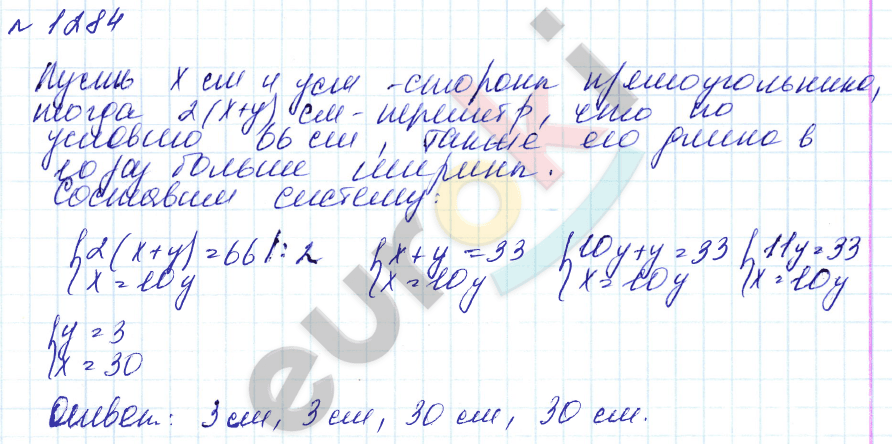 № 1284
Пусть x см и y см - стороны прямоугольника,
тогда 2(x+y) см - периметр, что по
условию 66 см, также его длина в
10 раз больше ширины.
Составим систему:
{2(x+y)=66 |:2 {x+y=33 {10y+y=33 {11y=33
{x=10y {x=10y {x=10y {x=10y
{y=3
{x=30
Ответ: 3 см, 3 см, 30 см, 30 см.
euroki